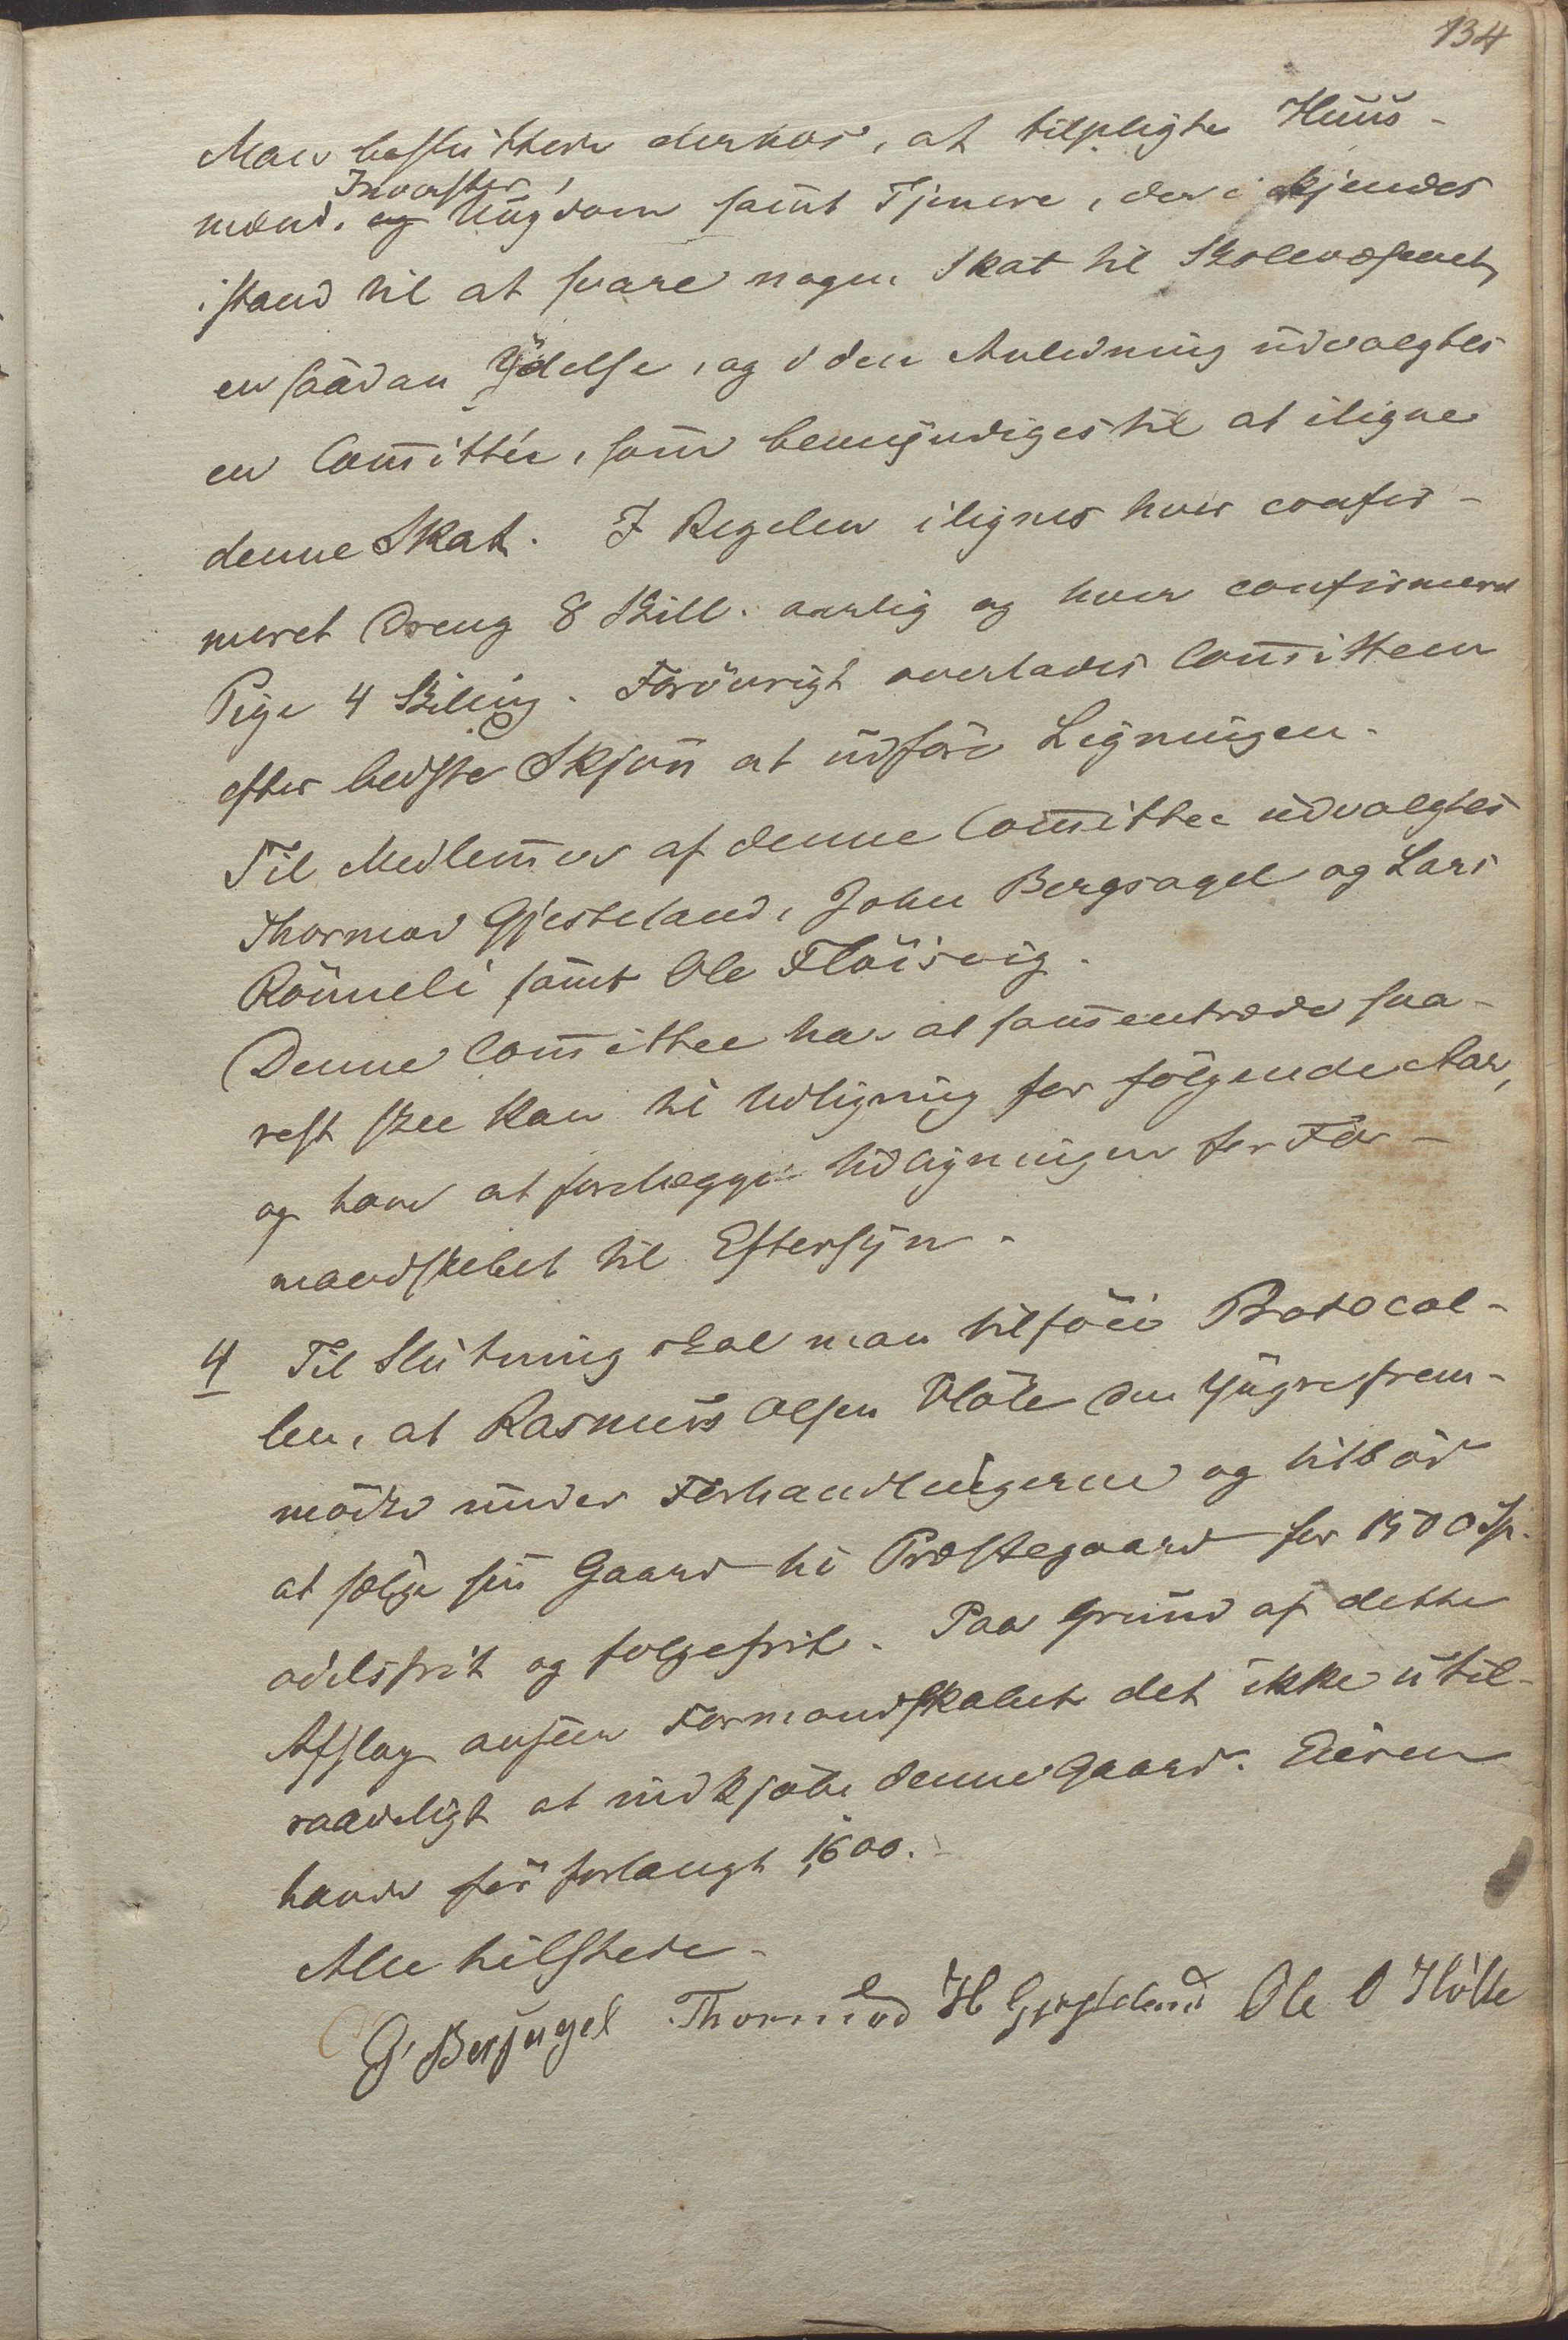 134
Man besluttede derhos, at tilpligte Huus-
Inderster,
mænd, og Ungdom samt Tjenere, der i kjendes
istand til at svare nogen Skat til Skolevæsenet,
en saadan Ydelse, og i den Anledning udvalgtes
en Committée, som bemyndiges til at iligne
denne Skat. I Regelen ilignes hver confir-
meret Dreng 8 Skill. aarlig og hver confirmeret
Pige 4 Skilling. Forövrigt overlades Committeen
efter bedste Skjön at udföre Ligningen.
Til Medlemmer af denne Committee udvalgtes
Thormod Gjesteland, John Bergsagel og Lars
Rönneli samt Ole Flöisvig.
Denne Committee har at sammentræde sna-
rest skee kan til Udligning for fölgende Aar,
og have at forelægge Udligningen for For-
mandskabet til Eftersyn.
4 Til Slutning skal man tilföie Protocol-
len, at Rasmus Olsen Vlöte den yngre frem-
mödte under Forhandlingerne og tilböd
at sælge sin Gaard til Præstegaard for 1500 Sp.
odelsfrit og folgefrit. Paa Grund af dette
Afslag anseer Formandskabet det ikke util-
raadeligt at indkjöbe denne Gaard. Eieren
havde för forlangt 1600.
Alle tilstede.
G. Bersagel Thormod H Gjesteland Ole O Hölle